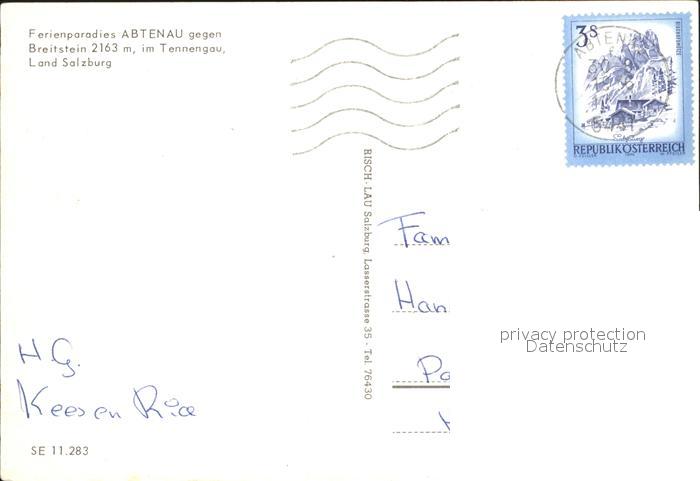 Ferienparadies ABTENAU gegen
Breitstein 2163 m, im Tennengau,
Land Salzburg
3S
ABTENAU
5441
REPUBLIK ÖSTERREICH
RISCH-LAU Salzburg, Lasserstrasse 35 - Tel. 76430
Fam
Han
Po
privacy protection
Datenschutz
H.G.
Kees en Ria
SE 11.283